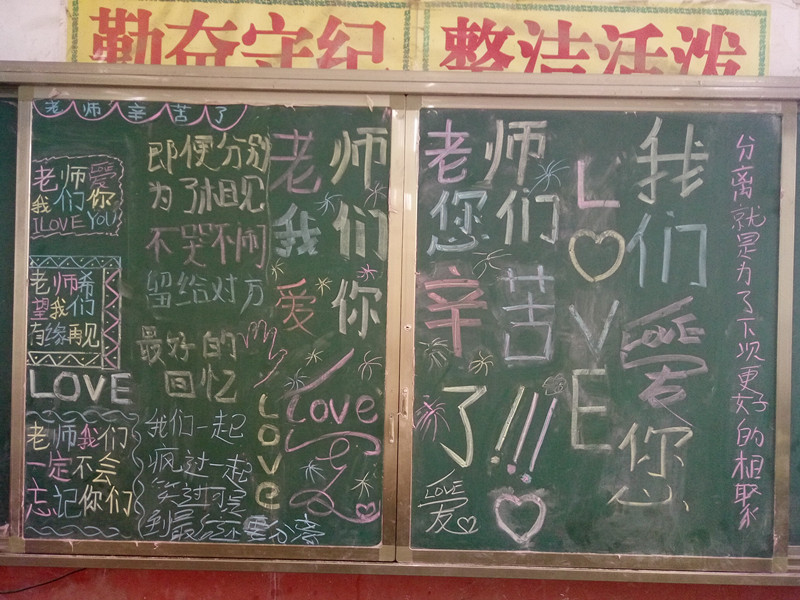 勤奋守纪
整洁活泼
老师辛苦了
老师爱
我们你
ILOVE YOU
老师希
望我们
有缘再见
LOVE
老师我们
一定不会
忘记你们
即便分别
为了相见
不哭不闹
留给对方
最好的
回忆
我们一起
疯过一起
笑过可是
到最后还要分离
LOVE
老师
我们
爱你
Love
老师
您们
辛苦
了!!!
LOVE
友
LOVE
我们
LOVE
爱
你
分离就是为了下次更好的相聚